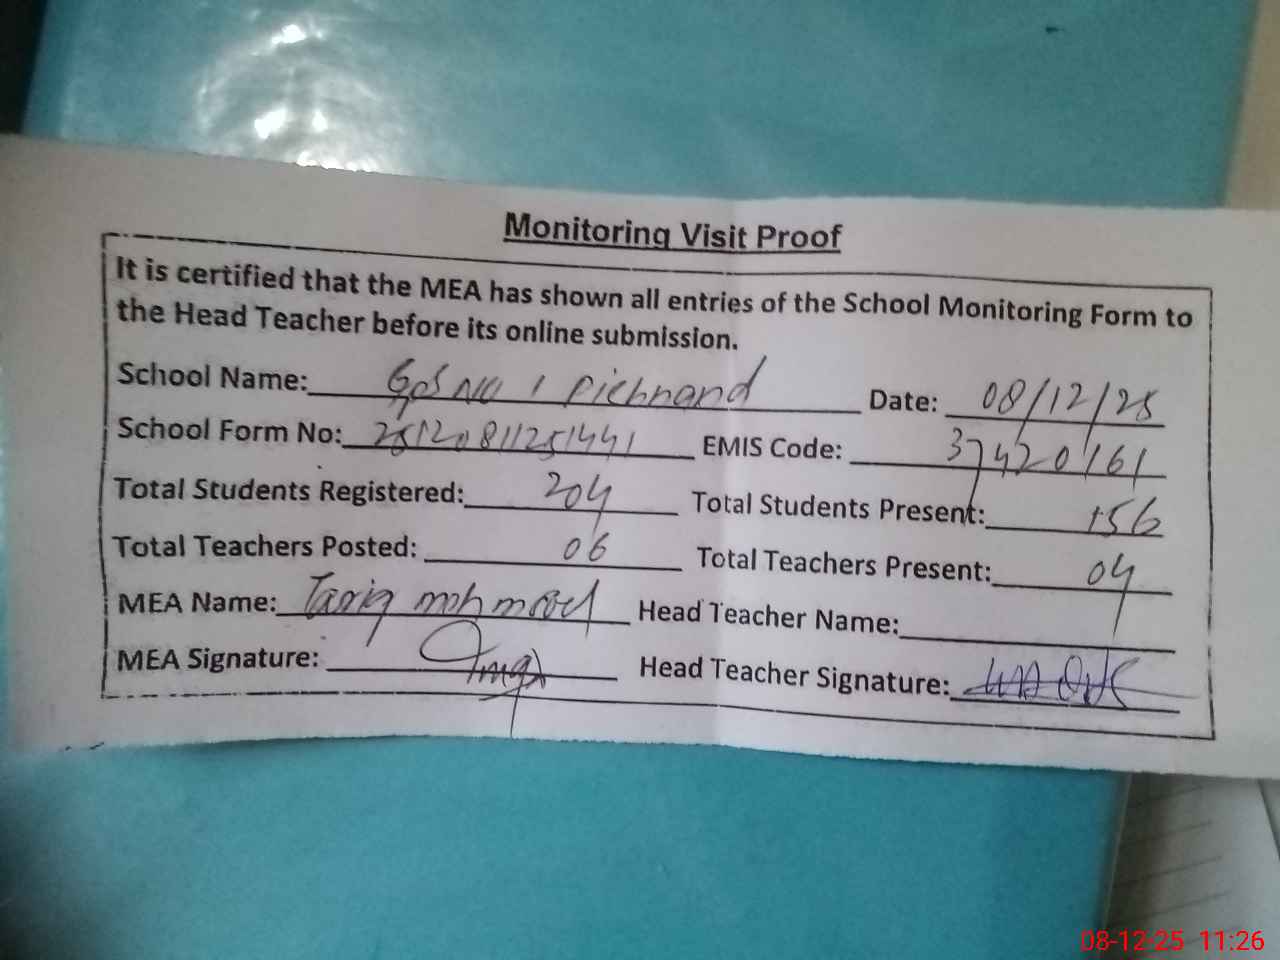 Monitoring Visit Proof
It is certified that the MEA has shown all entries of the School Monitoring Form to
the Head Teacher before its online submission.
School Name: GPS NO 1 Pichnand Date: 08/12/25
School Form No: 25120811251441 EMIS Code: 37420161
Total Students Registered: 204 Total Students Present: 156
Total Teachers Posted: 06 Total Teachers Present: 04
MEA Name: Tariq mehmood Head Teacher Name:
MEA Signature: Head Teacher Signature:
08-12-25 11:26